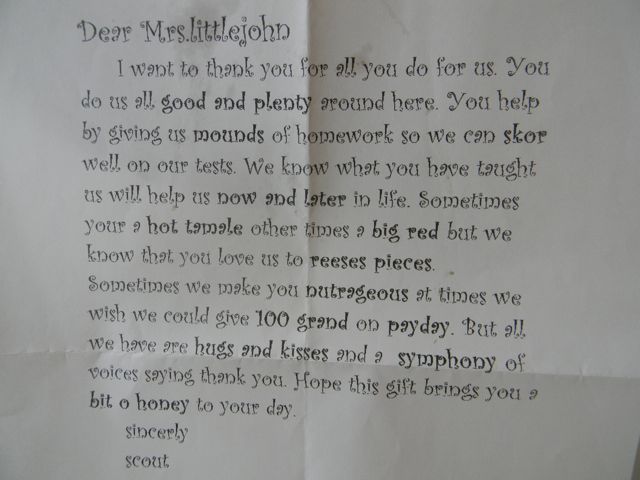 Dear Mrs.littlejohn
I want to thank you for all you do for us. You
do us all good and plenty around here. You help
by giving us mounds of homework so we can skor
well on our tests. We know what you have taught
us will help us now and later in life. Sometimes
your a hot tamale other times a big red but we
know that you love us to reeses pieces.
Sometimes we make you nutrageous at times we
wish we could give 100 grand on payday. But all
we have are hugs and kisses and a symphony of
voices saying thank you. Hope this gift brings you a
bit o honey to your day.
sincerly
scout